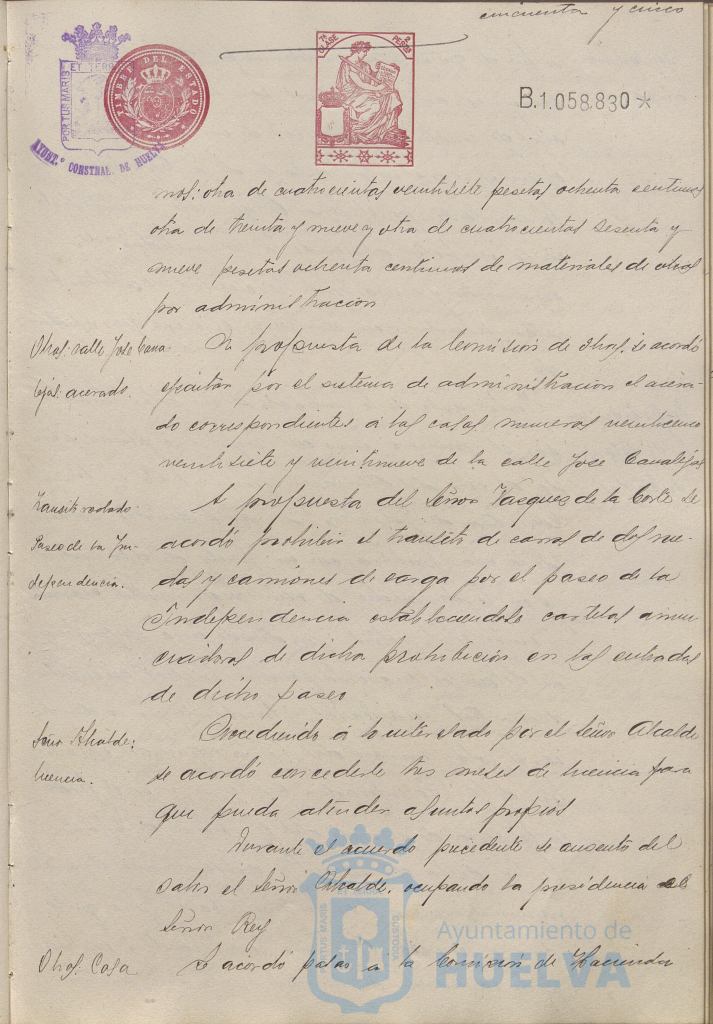 cincuenta y cinco
TIMBRE DEL ESTADO
PORTUS MARIS ET TERR
AYUNT.º CONSTNAL. DE HUELVA
7ª CLASE 2 PESAS
B.1.058.830*
nos: otra de cuatrocientas veintisiete pesetas ochenta centimos
otra de treinta y nueve y otra de cuatrocientas sesenta y
nueve pesetas ochenta centimos de materiales de obras
por administracion
Obras: calle Jose Cana-
lejas: acerado.
A propuesta de la Comision de Obras se acordó
ejecutar por el sistema de administracion el acera-
do correspondientes á las casas numeros veinticinco
veintisiete y veintinueve de la calle Jose Canalejas
Transito rodado
Paseo de la In-
dependencia.
A propuesta del Señor Vasques de la Corte se
acordó prohibir el transito de carros de dos rue-
das y camiones de carga por el paseo de la
Independencia estableciendose carteles anun-
ciadores de dicha prohibicion en las entradas
de dicho paseo
Señor Alcalde:
licencia.
Accediendo á lo interesado por el Señor Alcalde
se acordó concederle tres meses de licencia para
que pueda atender asuntos propios
Durante el acuerdo precedente se ausentó del
salon el Señor Alcalde, ocupando la presidencia el
Señor Rey
Obras: Casa
Se acordó pasar á la Comision de Hacienda
Ayuntamiento de
HUELVA